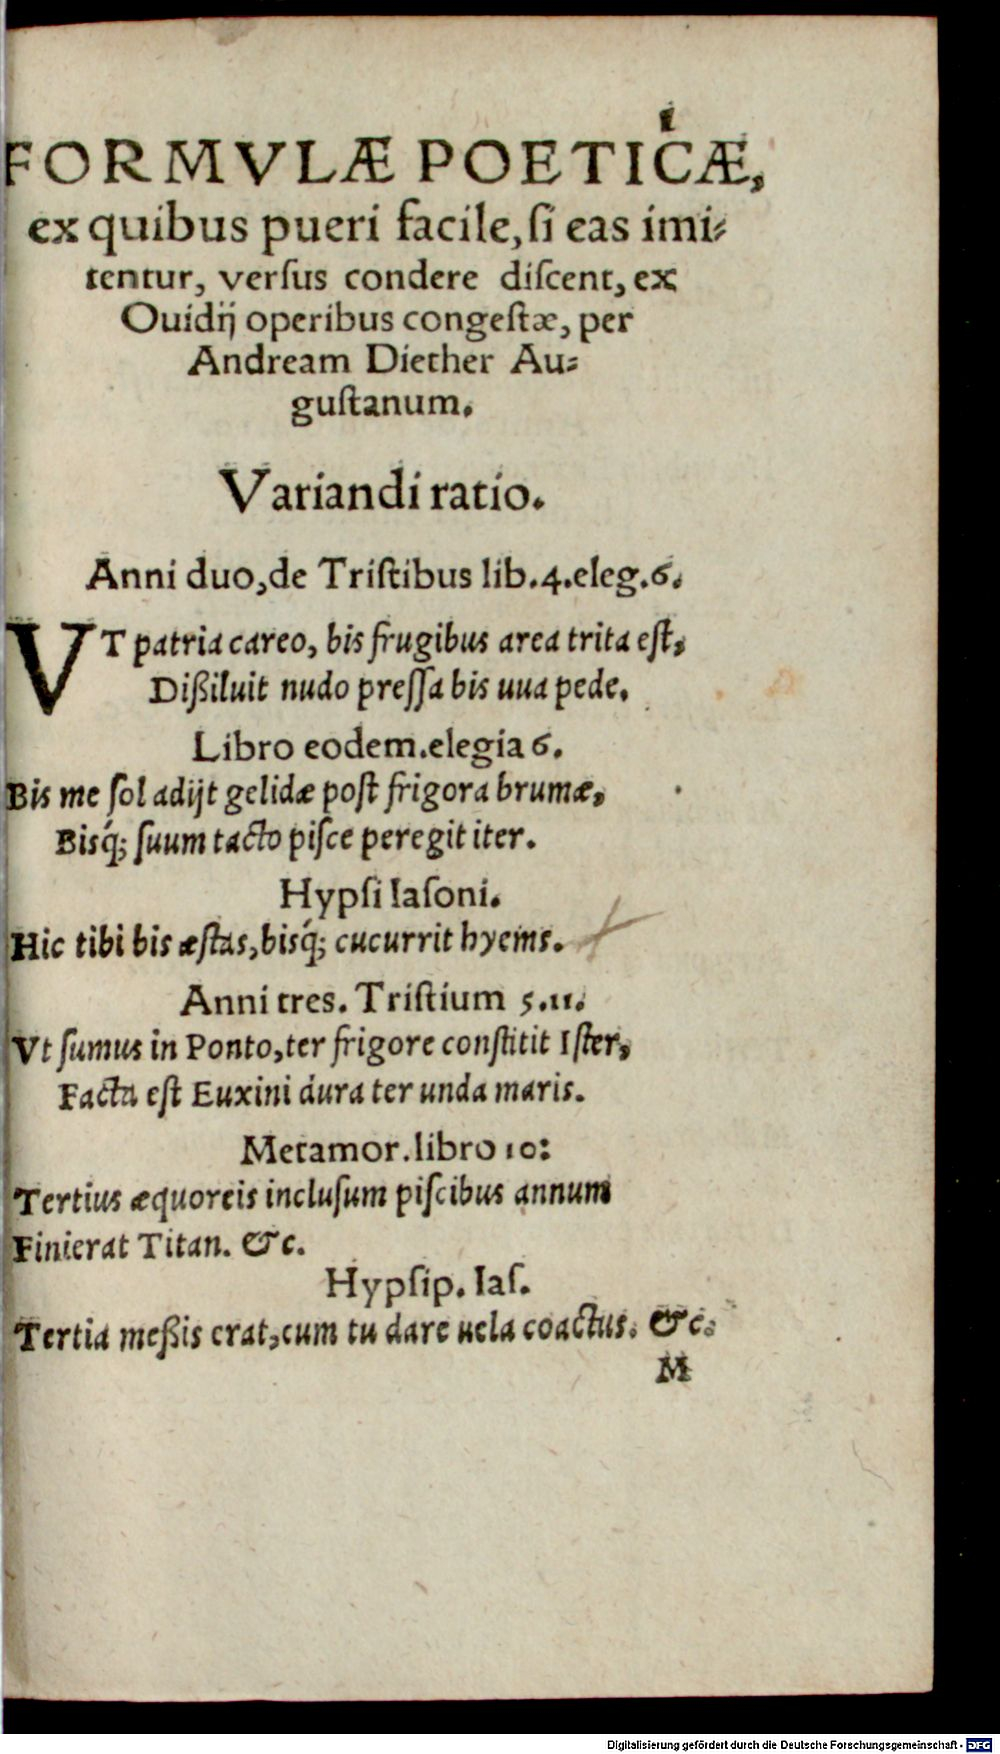 FORMVLÆ POETICÆ,
ex quibus pueri facile, ſi eas imi⸗
tentur, verſus condere diſcent, ex
Ouidĳ operibus congeſtæ, per
Andream Diether Au⸗
guſtanum.
Variandi ratio.
Anni duo, de Triſtibus lib. 4. eleg. 6.
VT patria careo, bis frugibus area trita eſt,
Dißiluit nudo preſſa bis uua pede.
Libro eodem. elegia 6.
Bis me ſol adijt gelidæ poſt frigora brumæ,
Bisq́; ſuum tacto piſce peregit iter.
Hypſi Iaſoni.
Hic tibi bis æſtas, bisq́; cucurrit hyems.
Anni tres. Triſtium 5. 11.
Vt ſumus in Ponto, ter frigore conſtitit Iſter,
Facta eſt Euxini dura ter unda maris.
Metamor. libro 10:
Tertius æquoreis incluſum piſcibus annum
Finierat Titan. &c.
Hypſip. Iaſ.
Tertia meßis erat, cum tu dare uela coactus. &c.
M
Digitalisierung gefördert durch die Deutsche Forschungsgemeinschaft - DFG